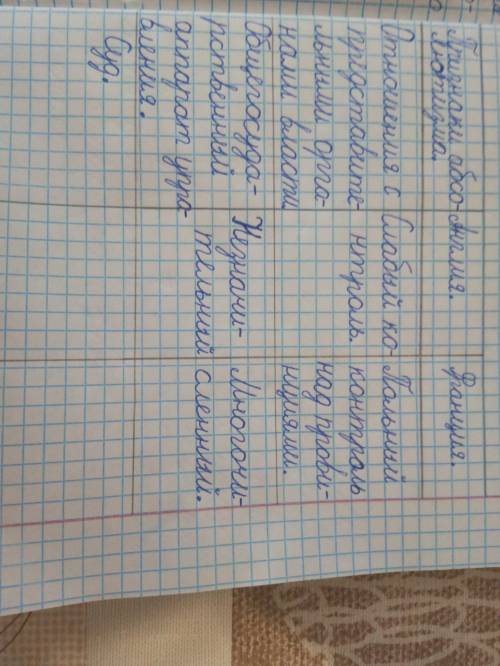 Признаки абсо-
лютизма.
Англия.
Франция.
Отношения с
представите-
льными орга-
нами власти
Слабый ко-
нтроль.
Полный
контроль
над прови-
нциями.
Общегосуда-
рственный
аппарат упра-
вления.
Незначи-
тельный
Многочи-
сленный.
Суд.